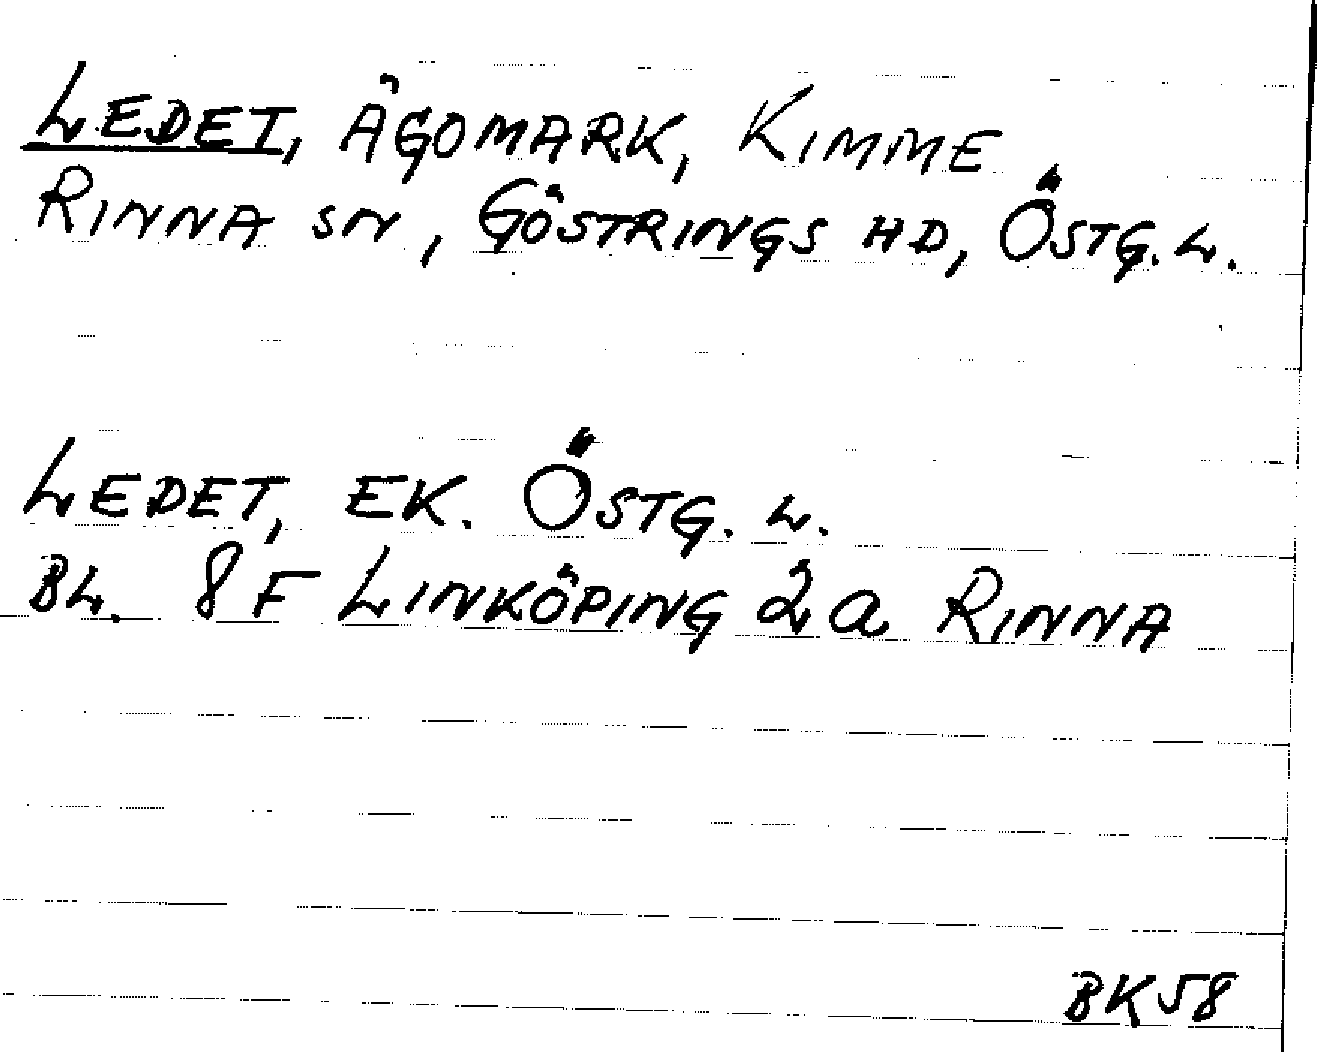 LEDET, ÄGOMARK, KIMME
RINNA SN, GÖSTRINGS HD, ÖSTG. L.
LEDET, EK. ÖSTG. L.
BL. 8F LINKÖPING 2a RINNA
BK58